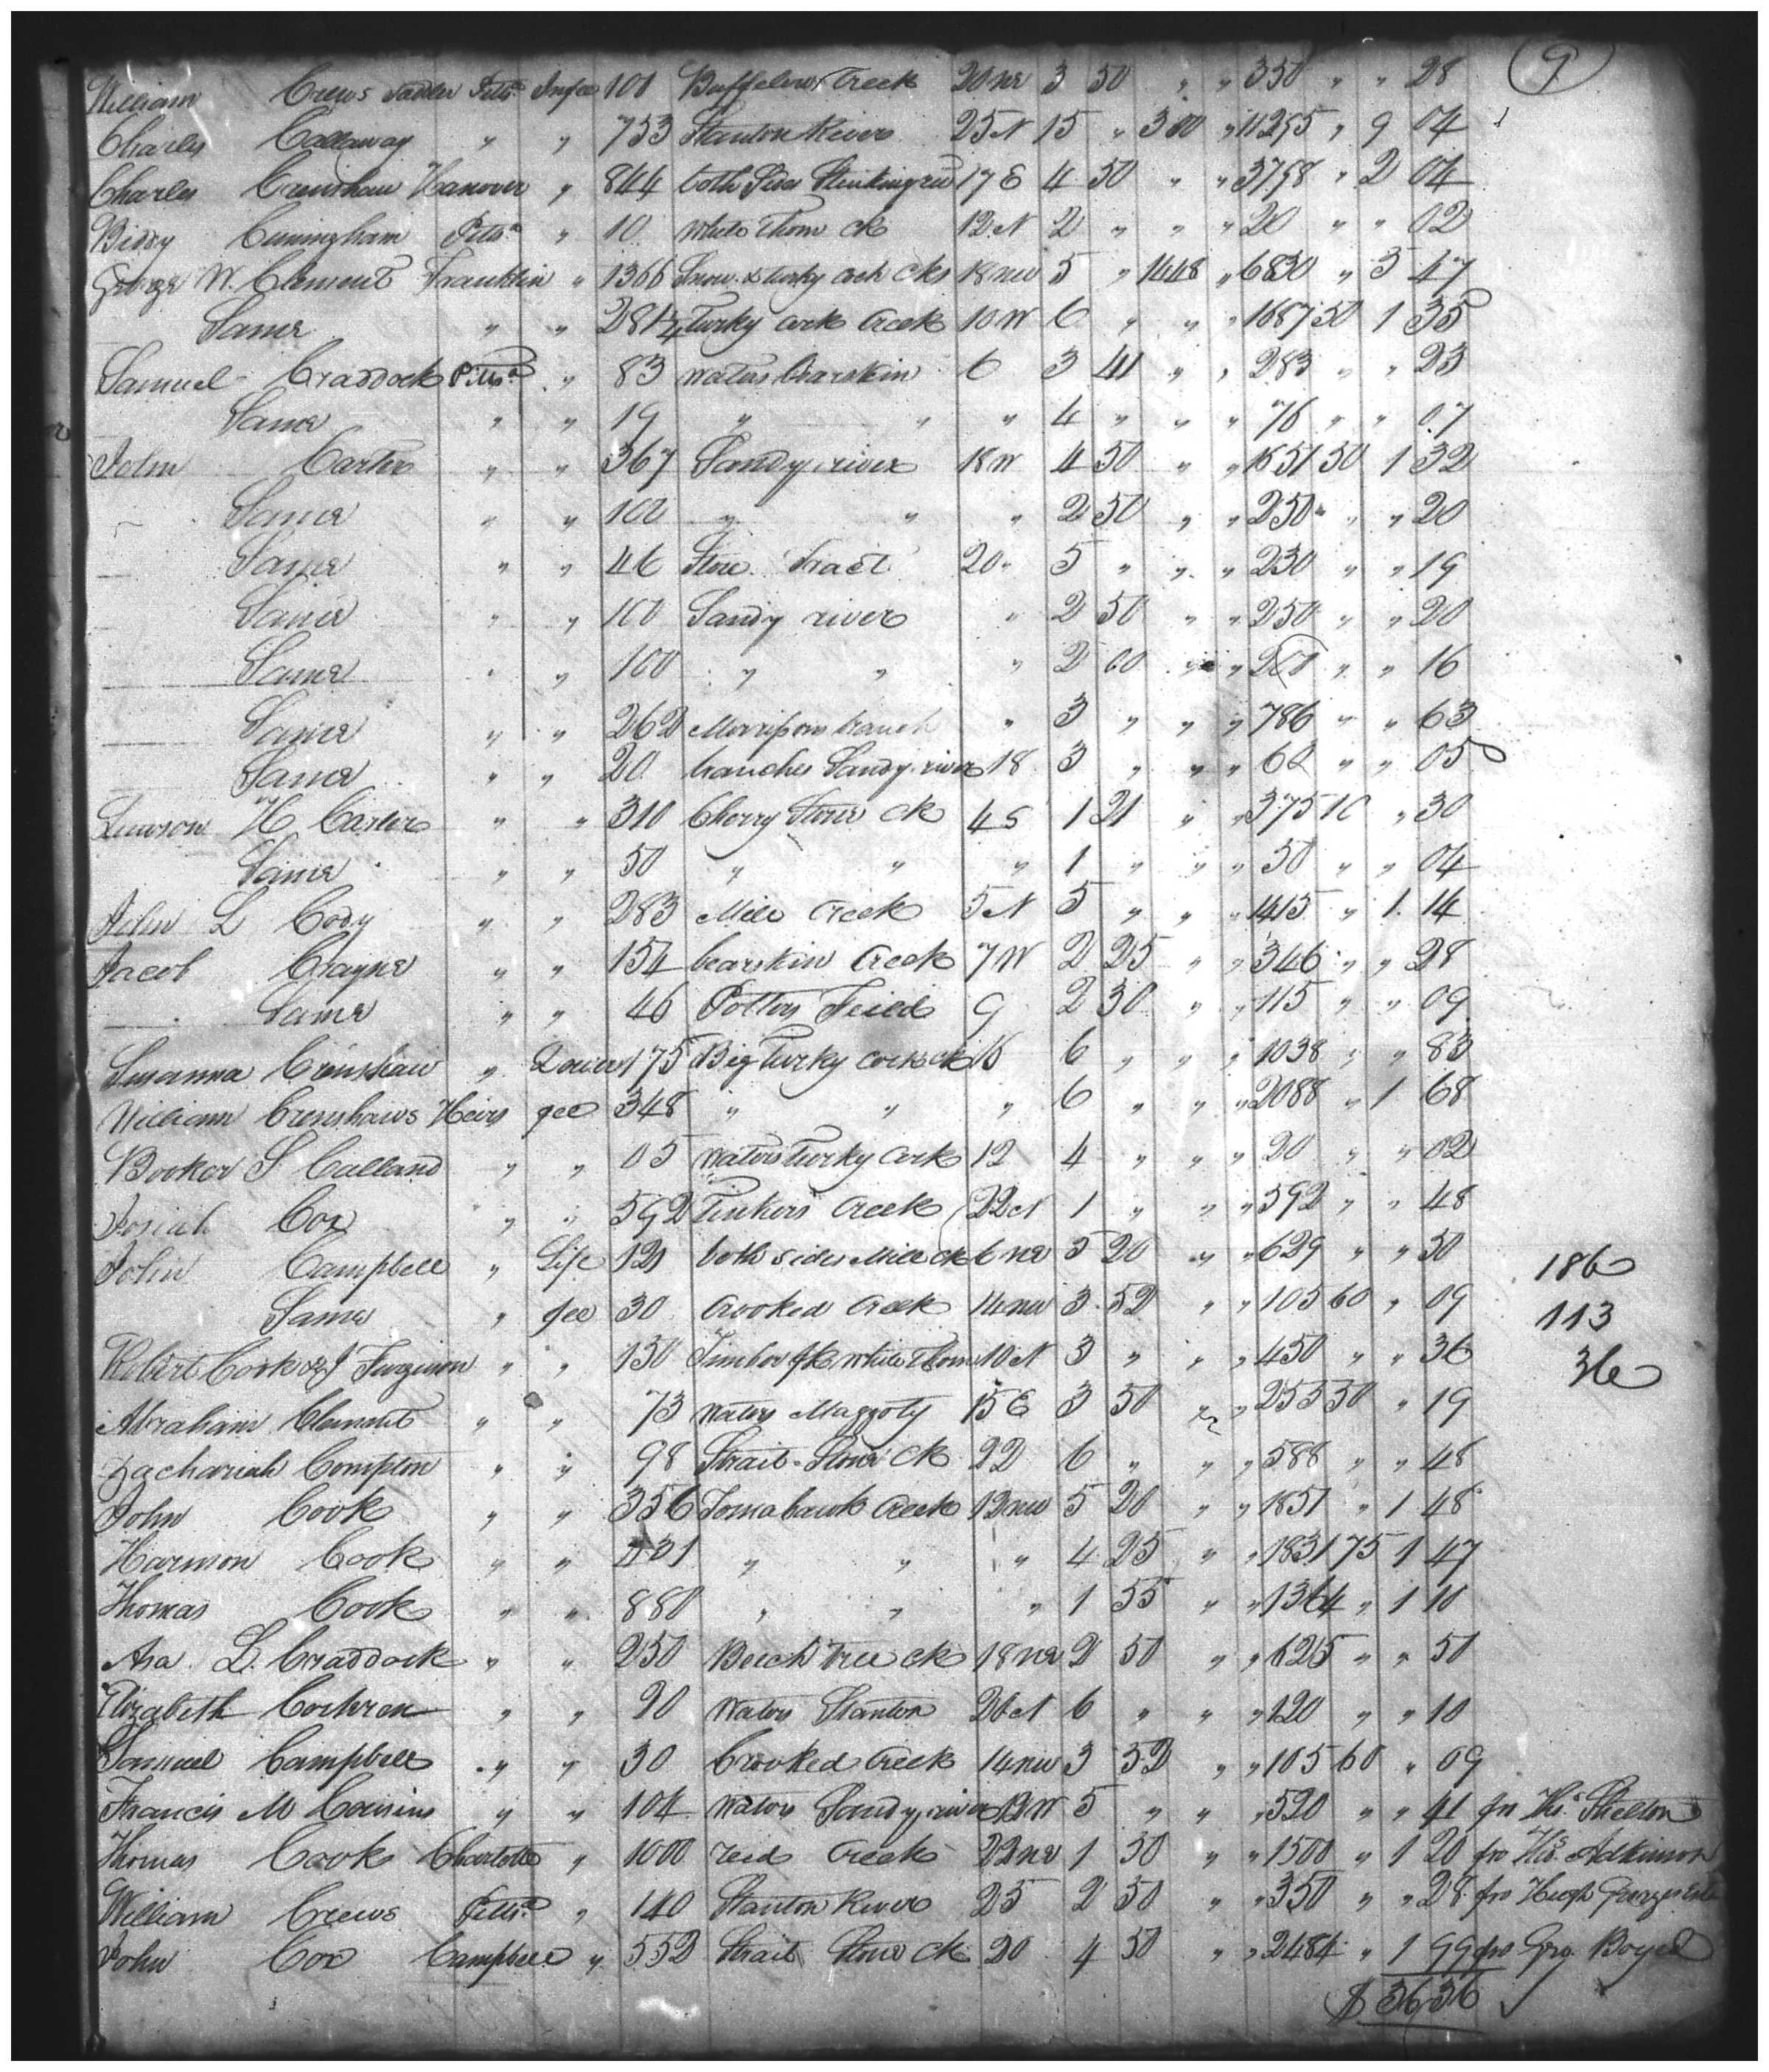 9
William Crews Sadler Pitts.a In fee 100 Buffelow Creek 20 NE 3 50 " " 350 " " 28
Charles Callaway " " 753 Stanton River 25 N 15 " 300 " 11295 " 9 04
Charles Crenshaw Hanover " 844 both Sides Stinking riv 17 E 4 50 " " 3798 " 2 04
Biddy Cuningham Pitts.a " 10 White Thorn Ck 12 N 2 " " " 20 " " 02
George W. Clement Franklin " 1366 Snow & turky cock cks 18 NW 5 " 1448 " 6830 " 5 47
Same " " 281¼ Turky cock Creek 10 W 6 " " " 1687 50 1 35
Samuel Craddock Pitts.a " 83 waters bearskin 6 3 41 " " 283 " " 23
Same " " 19 " " " 4 " " " 76 " " 07
John Carter " " 367 Sandy river 18 W 4 50 " " 1651 50 1 32
Same " " 100 " " " 2 50 " " 250 " " " 20
Same " " 46 Store Tract 20 " 5 " " " 230 " " 19
Same " " 100 Sandy river " 2 50 " " 250 " " 20
Same " " 100 " " " 2 00 " " 200 " " 16
Same " " 262 Morrisons branch " 3 " " " 786 " " 63
Same " " 20 branches Sandy river 18 3 " " " 60 " " 05
Lawson H Carter " " 310 Cherry Stone Ck 4 S 1 21 " " 375 10 " 30
Same " " 50 " " " 1 " " " 50 " " 04
John L Cody " " 283 Mill Creek 5 N 5 " " " 1415 " 1 14
Jacob Crayne " " 154 bearskin Creek 7 W 2 25 " " 346 " " 28
Same " " 46 Potters Feild 9 2 50 " " 115 " " 09
Susanna Crenshaw " Dower 175 Big Turky cock ck 15 6 " " " 1038 " " 83
William Crenshaws Heirs fee 348 " " " 6 " " " 2088 " 1 68
Booker S Calland " " 05 waters turky cock 12 4 " " " 20 " " 02
Josiah Cox " " 592 Tinkers Creek 22 N 1 " " " 592 " " 48
John Campbell " Life 121 both sides Mill Ck 6 NE 5 20 " " 629 " " 50
186
Same " fee 30 Crooked Creek 14 NW 3 52 " " 105 60 " 09
113
Robert Cook & J Furgison " " 150 Timber fk white Thorn 10 N 3 " " " 450 " " 36
36
Abraham Clement " " 73 waters Maggoty 15 E 3 50 " " 255 50 " 19
Zachariah Compton " " 98 Strait Stone Ck 22 6 " " " 588 " " 48
John Cook " " 356 Tomahawk Creek 12 NW 5 20 " " 1851 " 1 48
Harmon Cook " " 431 " " " 4 25 " " 1831 75 1 47
Thomas Cook " " 880 " " " 1 55 " " 1364 " 1 10
Asa L. Craddock " " 250 Beech tree ck 18 NE 2 50 " " 625 " " 50
Elizabeth Cochren " " 20 waters Stanton 26 N 6 " " " 120 " " 10
Samuel Campbell " " 30 Crooked Creek 14 NW 3 52 " " 105 60 " 09
Francis M Cousins " " 104 waters Sandy river 12 W 5 " " " 520 " " 41 fro Ths. Shelton
Thomas Cook Charlotte " 1000 reed Creek 22 NE 1 50 " " 1500 " 1 20 fro Ths. Adkinson
William Crews Pitts.a " 140 Stanton River 25 2 50 " " 350 " " 28 fro Hugh
John Cox Campbell " 552 Strait Stone Ck 20 4 50 " " 2484 " 1 99 fro Geo. Boyed
$ 3636